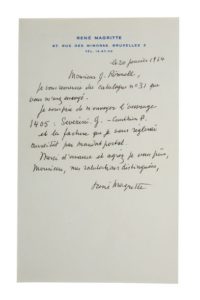 RENÉ MAGRITTE
97 RUE DES MIMOSAS, BRUXELLES 3
TEL. 15-07-30
le 20 janvier 1964
Monsieur J.
Je vous remercie du catalogue n° 31 que
vous m'avez envoyé.
Je vous prie de m'envoyer l'ouvrage
1405 : Severini G. -
et la facture que je vous réglerai
aussitôt par mandat postal.
Merci d'avance et agréez je vous prie,
Monsieur, mes salutations distinguées,
René Magritte